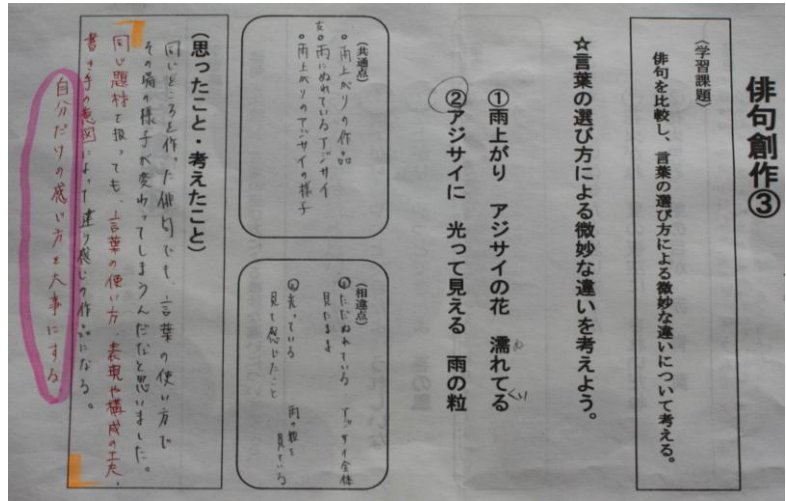 俳句創作③
〈学習課題〉
俳句を比較し、言葉の選び方による微妙な違いについて考える。
☆言葉の選び方による微妙な違いを考えよう。
①雨上がり アジサイの花 濡れてる
②アジサイに 光って見える 雨の粒
(共通点)
○雨上がりの作品
○雨にぬれているアジサイ
○雨上がりのアジサイの様子
(相違点)
①ただぬれている アジサイ全体
見たまま
②光っている 雨の粒を
見て感じたこと 見ている
(思ったこと・考えたこと)
同じところを作った俳句でも、言葉の使い方で
その場の様子が変わってしまうんだなと思いました。
同じ題材を扱っても、言葉の使い方、表現や構成の工夫、
書き手の意図によって違う感じの作品になる。
自分だけの感じ方を大事にする